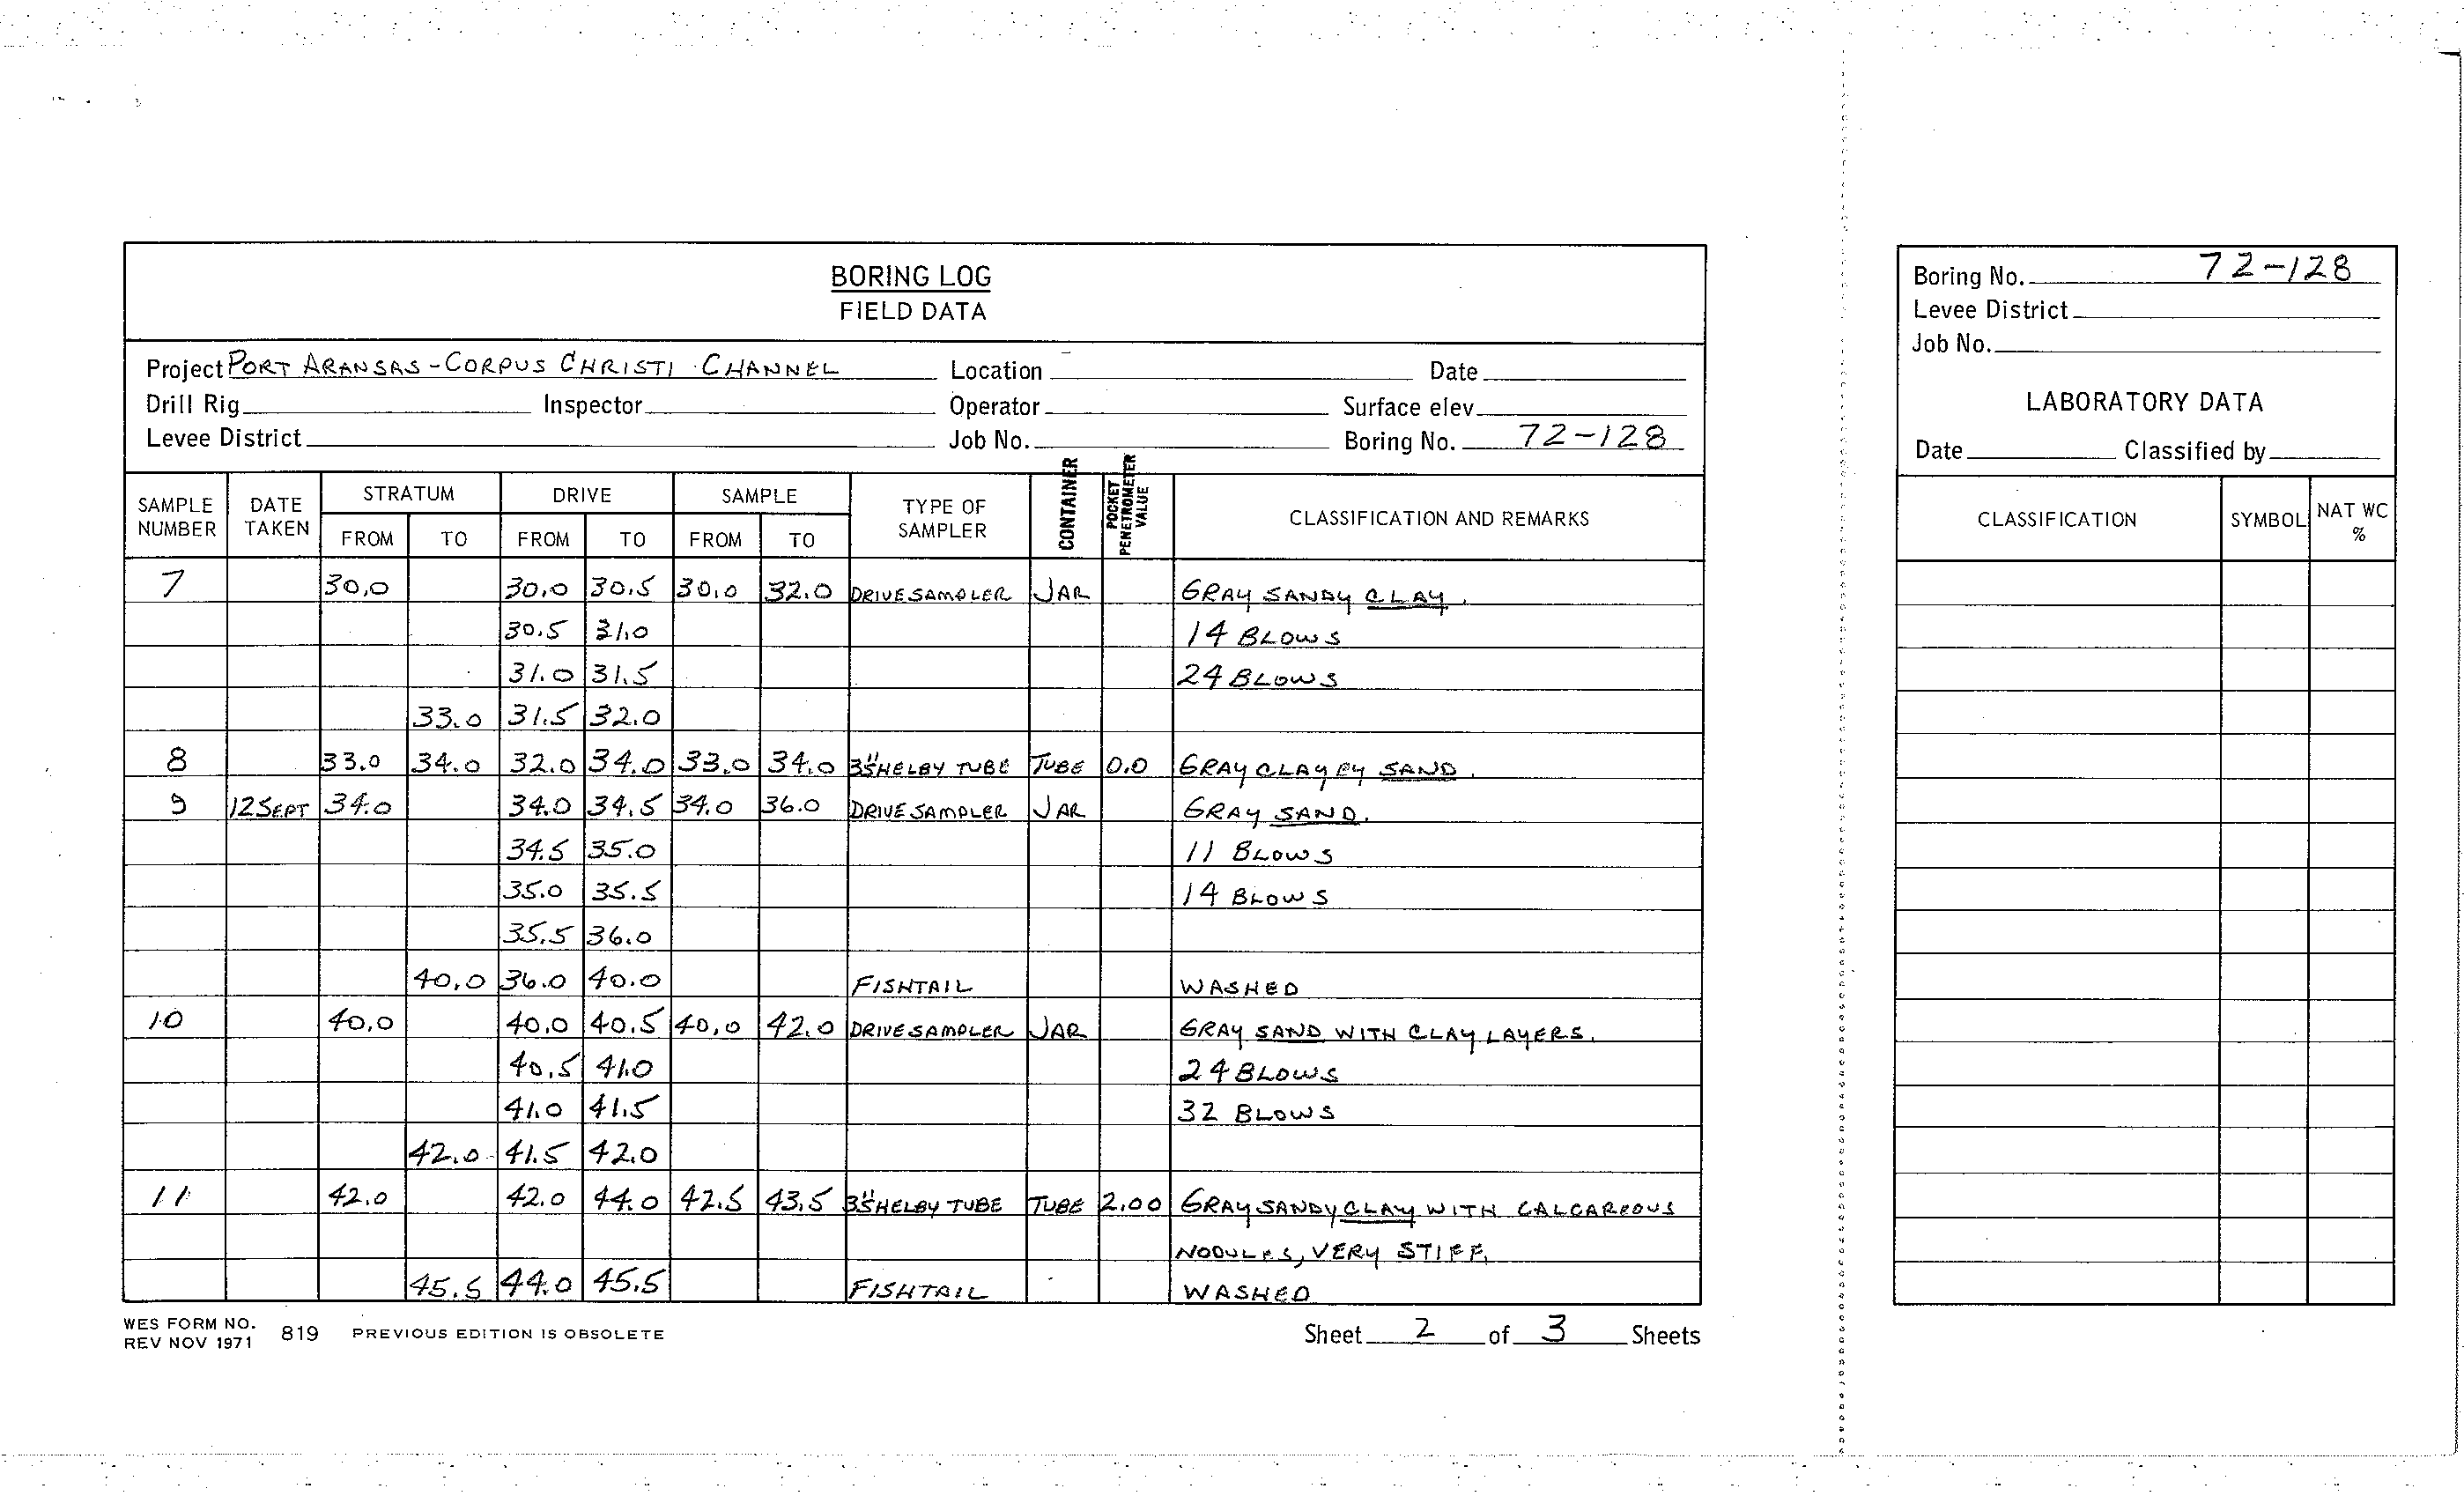 BORING LOG
FIELD DATA
Project PORT ARANSAS - CORPUS CHRISTI CHANNEL Location Date
Drill Rig Inspector Operator Surface elev.
Levee District Job No. Boring No. 72-128
SAMPLE NUMBER DATE TAKEN STRATUM FROM TO DRIVE FROM TO SAMPLE FROM TO TYPE OF SAMPLER CONTAINER POCKET PENETROMETER VALUE CLASSIFICATION AND REMARKS
7 30.0 30.0 30.5 30.0 32.0 DRIVE SAMPLER JAR GRAY SANDY CLAY.
30.5 31.0 14 BLOWS
31.0 31.5 24 BLOWS
33.0 31.5 32.0
8 33.0 34.0 32.0 34.0 33.0 34.0 3" SHELBY TUBE TUBE 0.0 GRAY CLAYEY SAND.
9 12 SEPT 34.0 34.0 34.5 34.0 36.0 DRIVE SAMPLER JAR GRAY SAND.
34.5 35.0 11 BLOWS
35.0 35.5 14 BLOWS
35.5 36.0
40.0 36.0 40.0 FISHTAIL WASHED
10 40.0 40.0 40.5 40.0 42.0 DRIVE SAMPLER JAR GRAY SAND WITH CLAY LAYERS.
40.5 41.0 24 BLOWS
41.0 41.5 32 BLOWS
42.0 41.5 42.0
11 42.0 42.0 44.0 42.5 43.5 3" SHELBY TUBE TUBE 2.00 GRAY SANDY CLAY WITH CALCAREOUS
NODULES, VERY STIFF.
45.5 44.0 45.5 FISHTAIL WASHED
WES FORM NO. 819 PREVIOUS EDITION IS OBSOLETE Sheet 2 of 3 Sheets
REV NOV 1971
Boring No. 72-128
Levee District
Job No.
LABORATORY DATA
Date Classified by
CLASSIFICATION SYMBOL NAT WC %